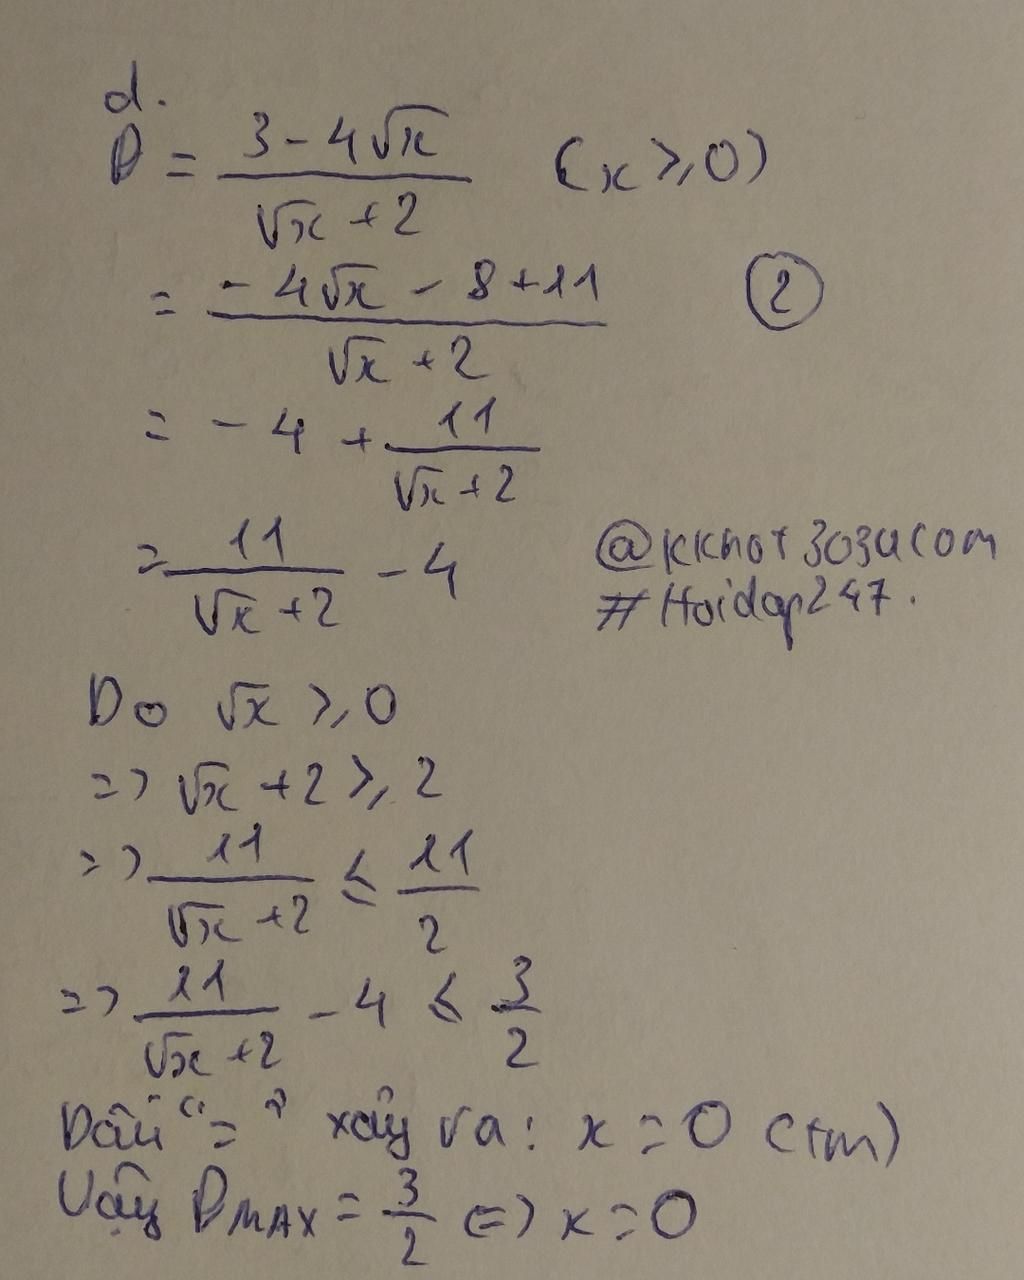 d.
D = (3 - 4√x)/(√x + 2) (x ≥ 0)
= (-4√x - 8 + 11)/(√x + 2) ②
= -4 + 11/(√x + 2)
= 11/(√x + 2) - 4
@kkhot303ucom
#Hoidap247.
Do √x ≥ 0
=> √x + 2 ≥ 2
=> 11/(√x + 2) ≤ 11/2
=> 11/(√x + 2) - 4 ≤ 3/2
Dấu "=" xảy ra: x = 0 (tm)
Vậy DMAX = 3/2 <=> x = 0